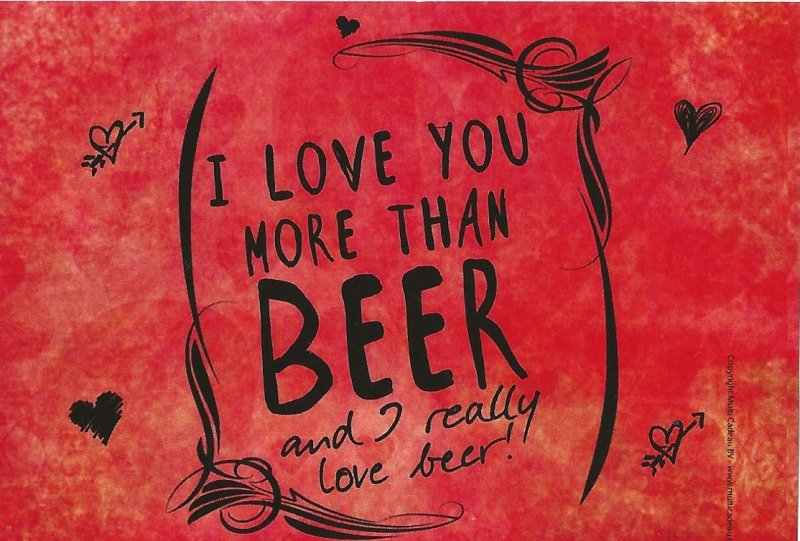 I LOVE YOU
MORE THAN
BEER
and I really
love beer!
Copyright Multi Cadeau BV - www.multicadeau